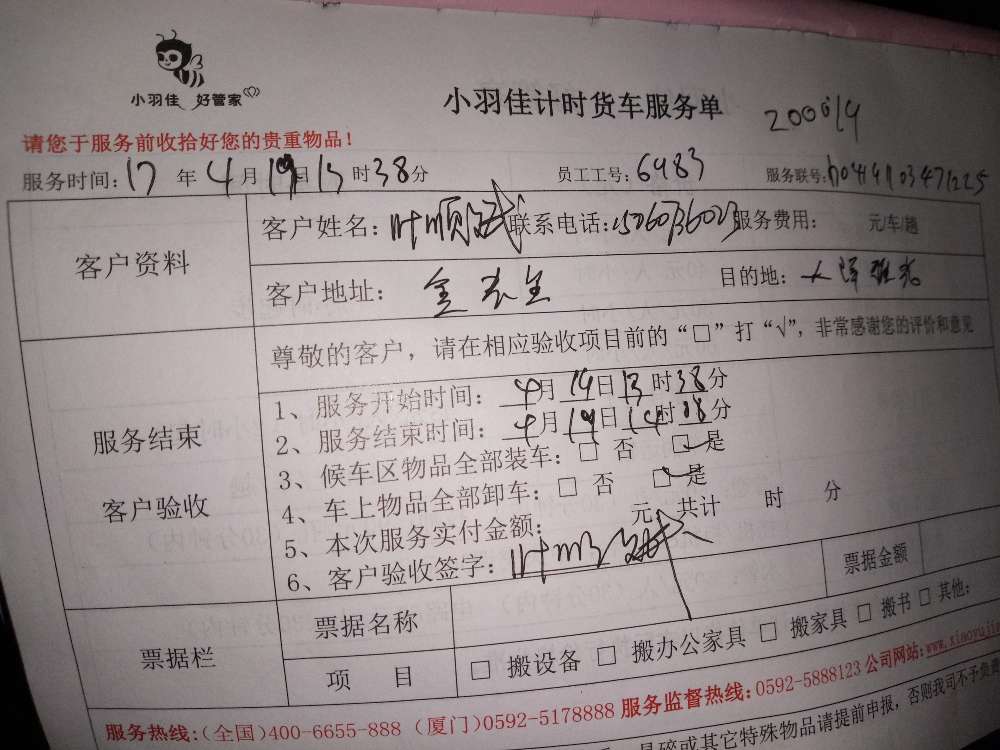 小羽佳 好管家
小羽佳计时货车服务单
请您于服务前收拾好您的贵重物品!
服务时间:17年4月19日13时38分 员工工号:6983 服务联号:
客户资料
客户姓名:叶顺 联系电话: 服务费用: 元/车/趟
客户地址: 目的地:
尊敬的客户,请在相应验收项目前的“□”打“√”,非常感谢您的评价和意见
服务结束
客户验收
1、服务开始时间:4月19日13时38分
2、服务结束时间:4月19日14时08分
3、候车区物品全部装车:□ 否 □ 是
4、车上物品全部卸车:□ 否 □ 是
5、本次服务实付金额: 元、共计 时 分
6、客户验收签字:叶顺
票据栏
票据名称 票据金额
项 目 □ 搬设备 □ 搬办公家具 □ 搬家具 □ 搬书 □ 其他:
服务热线:(全国)400-6655-888 (厦门)0592-5178888 服务监督热线:0592-5888123 公司网站:www.xiaoyujia
易碎或其它特殊物品请提前申报,否则我司不予负责